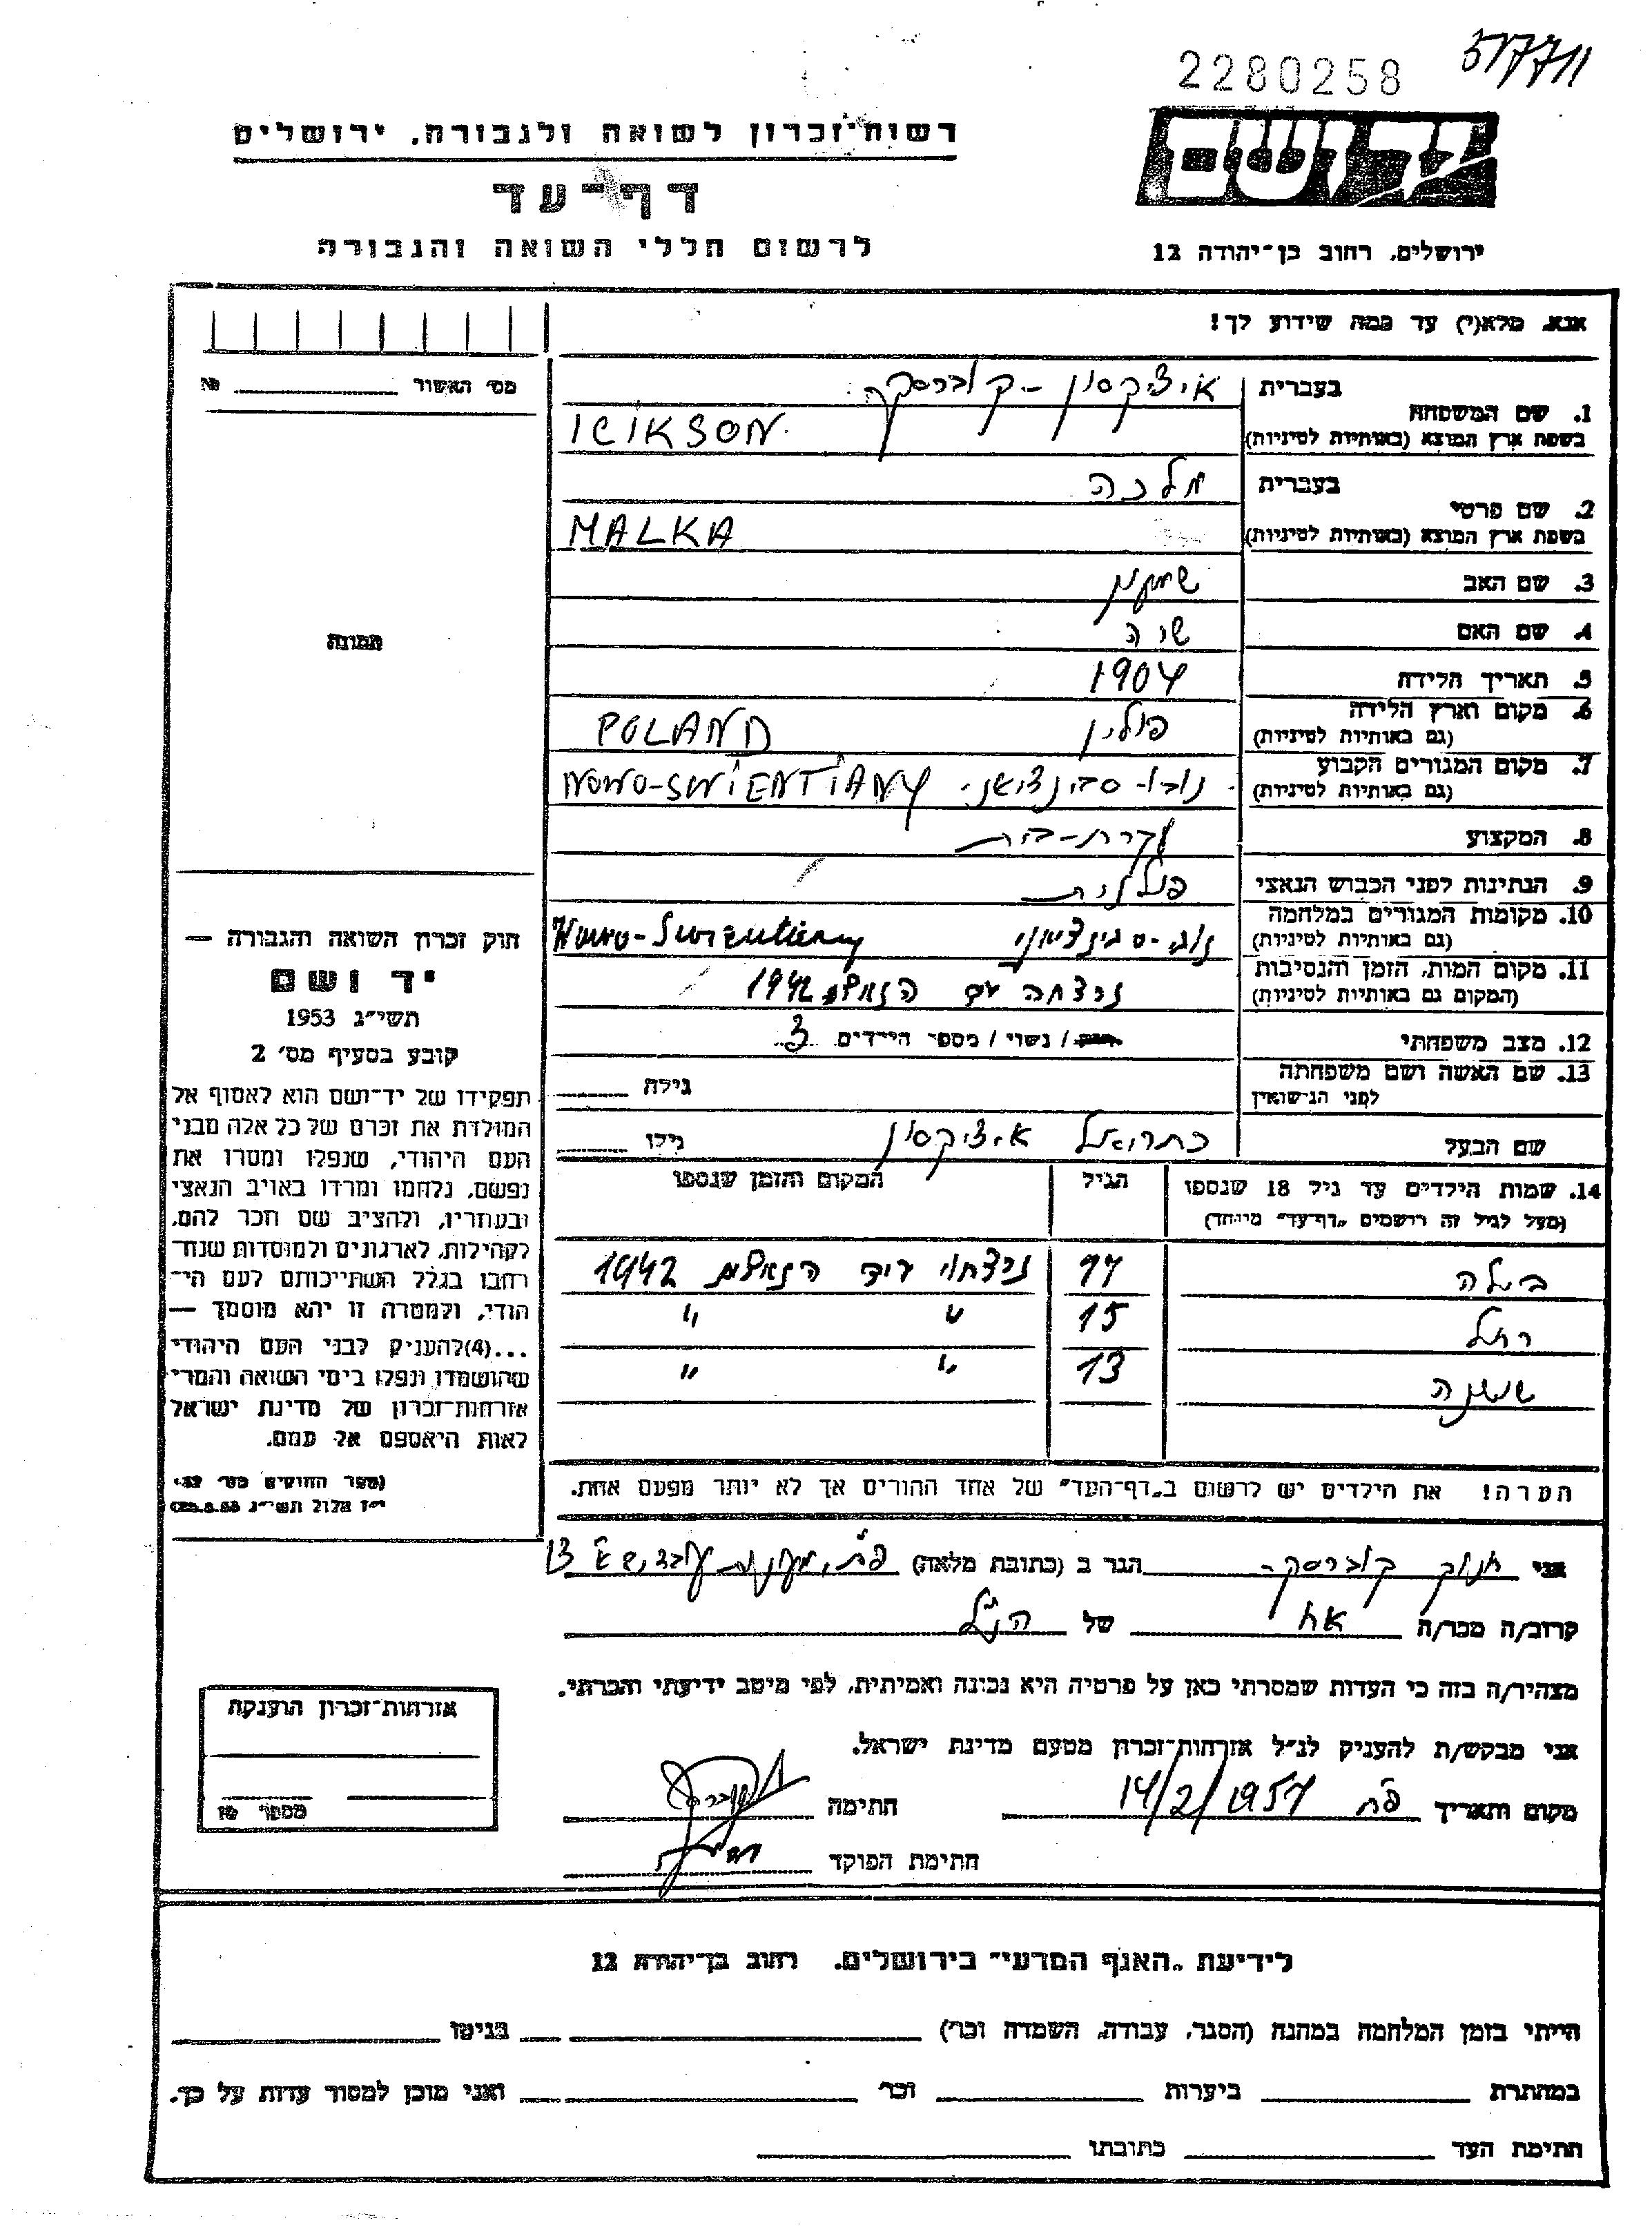 2280258
517711
רשות־זכרון לשואה ולגבורה, ירושלים
יד ושם
דף־עד
לרשום חללי השואה והגבורה
ירושלים, רחוב בן־יהודה 12
אנא, מלא(י) עד כמה שידוע לך!
מס' האשור № 
1. שם המשפחה בעברית איציקסון - קוברסקי
בשפת ארץ המוצא (באותיות לטיניות) ICIKSON
2. שם פרטי בעברית מלכה
בשפת ארץ המוצא (באותיות לטיניות) MALKA
3. שם האב שמעון
4. שם האם
תמונה
5. תאריך הלידה 1904
6. מקום וארץ הלידה (גם באותיות לטיניות) פולין POLAND
7. מקום המגורים הקבוע (גם באותיות לטיניות) נובו-סבינציאני NOWO-SWIENTIANY
8. המקצוע עקרת-בית
9. הנתינות לפני הכבוש הנאצי פולנית
10. מקומות המגורים במלחמה (גם באותיות לטיניות) Nowo-Swientiany
11. מקום המות, הזמן והנסיבות (המקום גם באותיות לטיניות) נרצחה הנאצים 1942
12. מצב משפחתי רווק / נשוי / מספר הילדים 3
13. שם האשה ושם משפחתה לפני הנישואין גילה
שם הבעל כתריאל איציקסון גילו
14. שמות הילדים עד גיל 18 שנספו הגיל המקום והזמן שנספו
(מעל לגיל זה רושמים „דף־עד" מיוחד)
בילה 17 נרצחו בידי הנאצים 1942
רחל 15 " "
שושנה 13 " "
הערה! את הילדים יש לרשום ב„דף־העד" של אחד ההורים אך לא יותר מפעם אחת.
חוק זכרון השואה והגבורה —
יד ושם
תשי״ג 1953
קובע בסעיף מס' 2
תפקידו של יד־ושם הוא לאסוף אל
המולדת את זכרם של כל אלה מבני
העם היהודי, שנפלו ומסרו את
נפשם, נלחמו ומרדו באויב הנאצי
ובעוזריו, ולהציב שם וזכר להם,
לקהילות, לארגונים ולמוסדות שנח־
רבו בגלל השתייכותם לעם הי־
הודי, ולמטרה זו יהא מוסמך —
...(4) להעניק לבני העם היהודי
שהושמדו ונפלו בימי השואה והמרי
אזרחות־זכרון של מדינת ישראל
לאות היאספם אל עמם.
(ספר החוקים מס' 132,
י״ז אלול תשי״ג 28.8.53)
אני חנוך קוברסקי הגר ב (כתובת מלאה) פ״ת,
קרוב/ה מכר/ה אח של הנ״ל
מצהיר/ה בזה כי העדות שמסרתי כאן על פרטיה היא נכונה ואמיתית, לפי מיטב ידיעתי והכרתי.
אני מבקש/ת להעניק לנ״ל אזרחות־זכרון מטעם מדינת ישראל.
מקום ותאריך פ״ת 14/2/1957 חתימה
חתימת הפוקד
אזרחות־זכרון הוענקה
מספר
לידיעת „האגף המדעי" בירושלים, רחוב בן־יהודה 12
הייתי בזמן המלחמה במחנה (הסגר, עבודה, השמדה וכו') בגיטו
במחתרת ביערות וכו' ואני מוכן למסור עדות על כך.
חתימת העד כתובתו